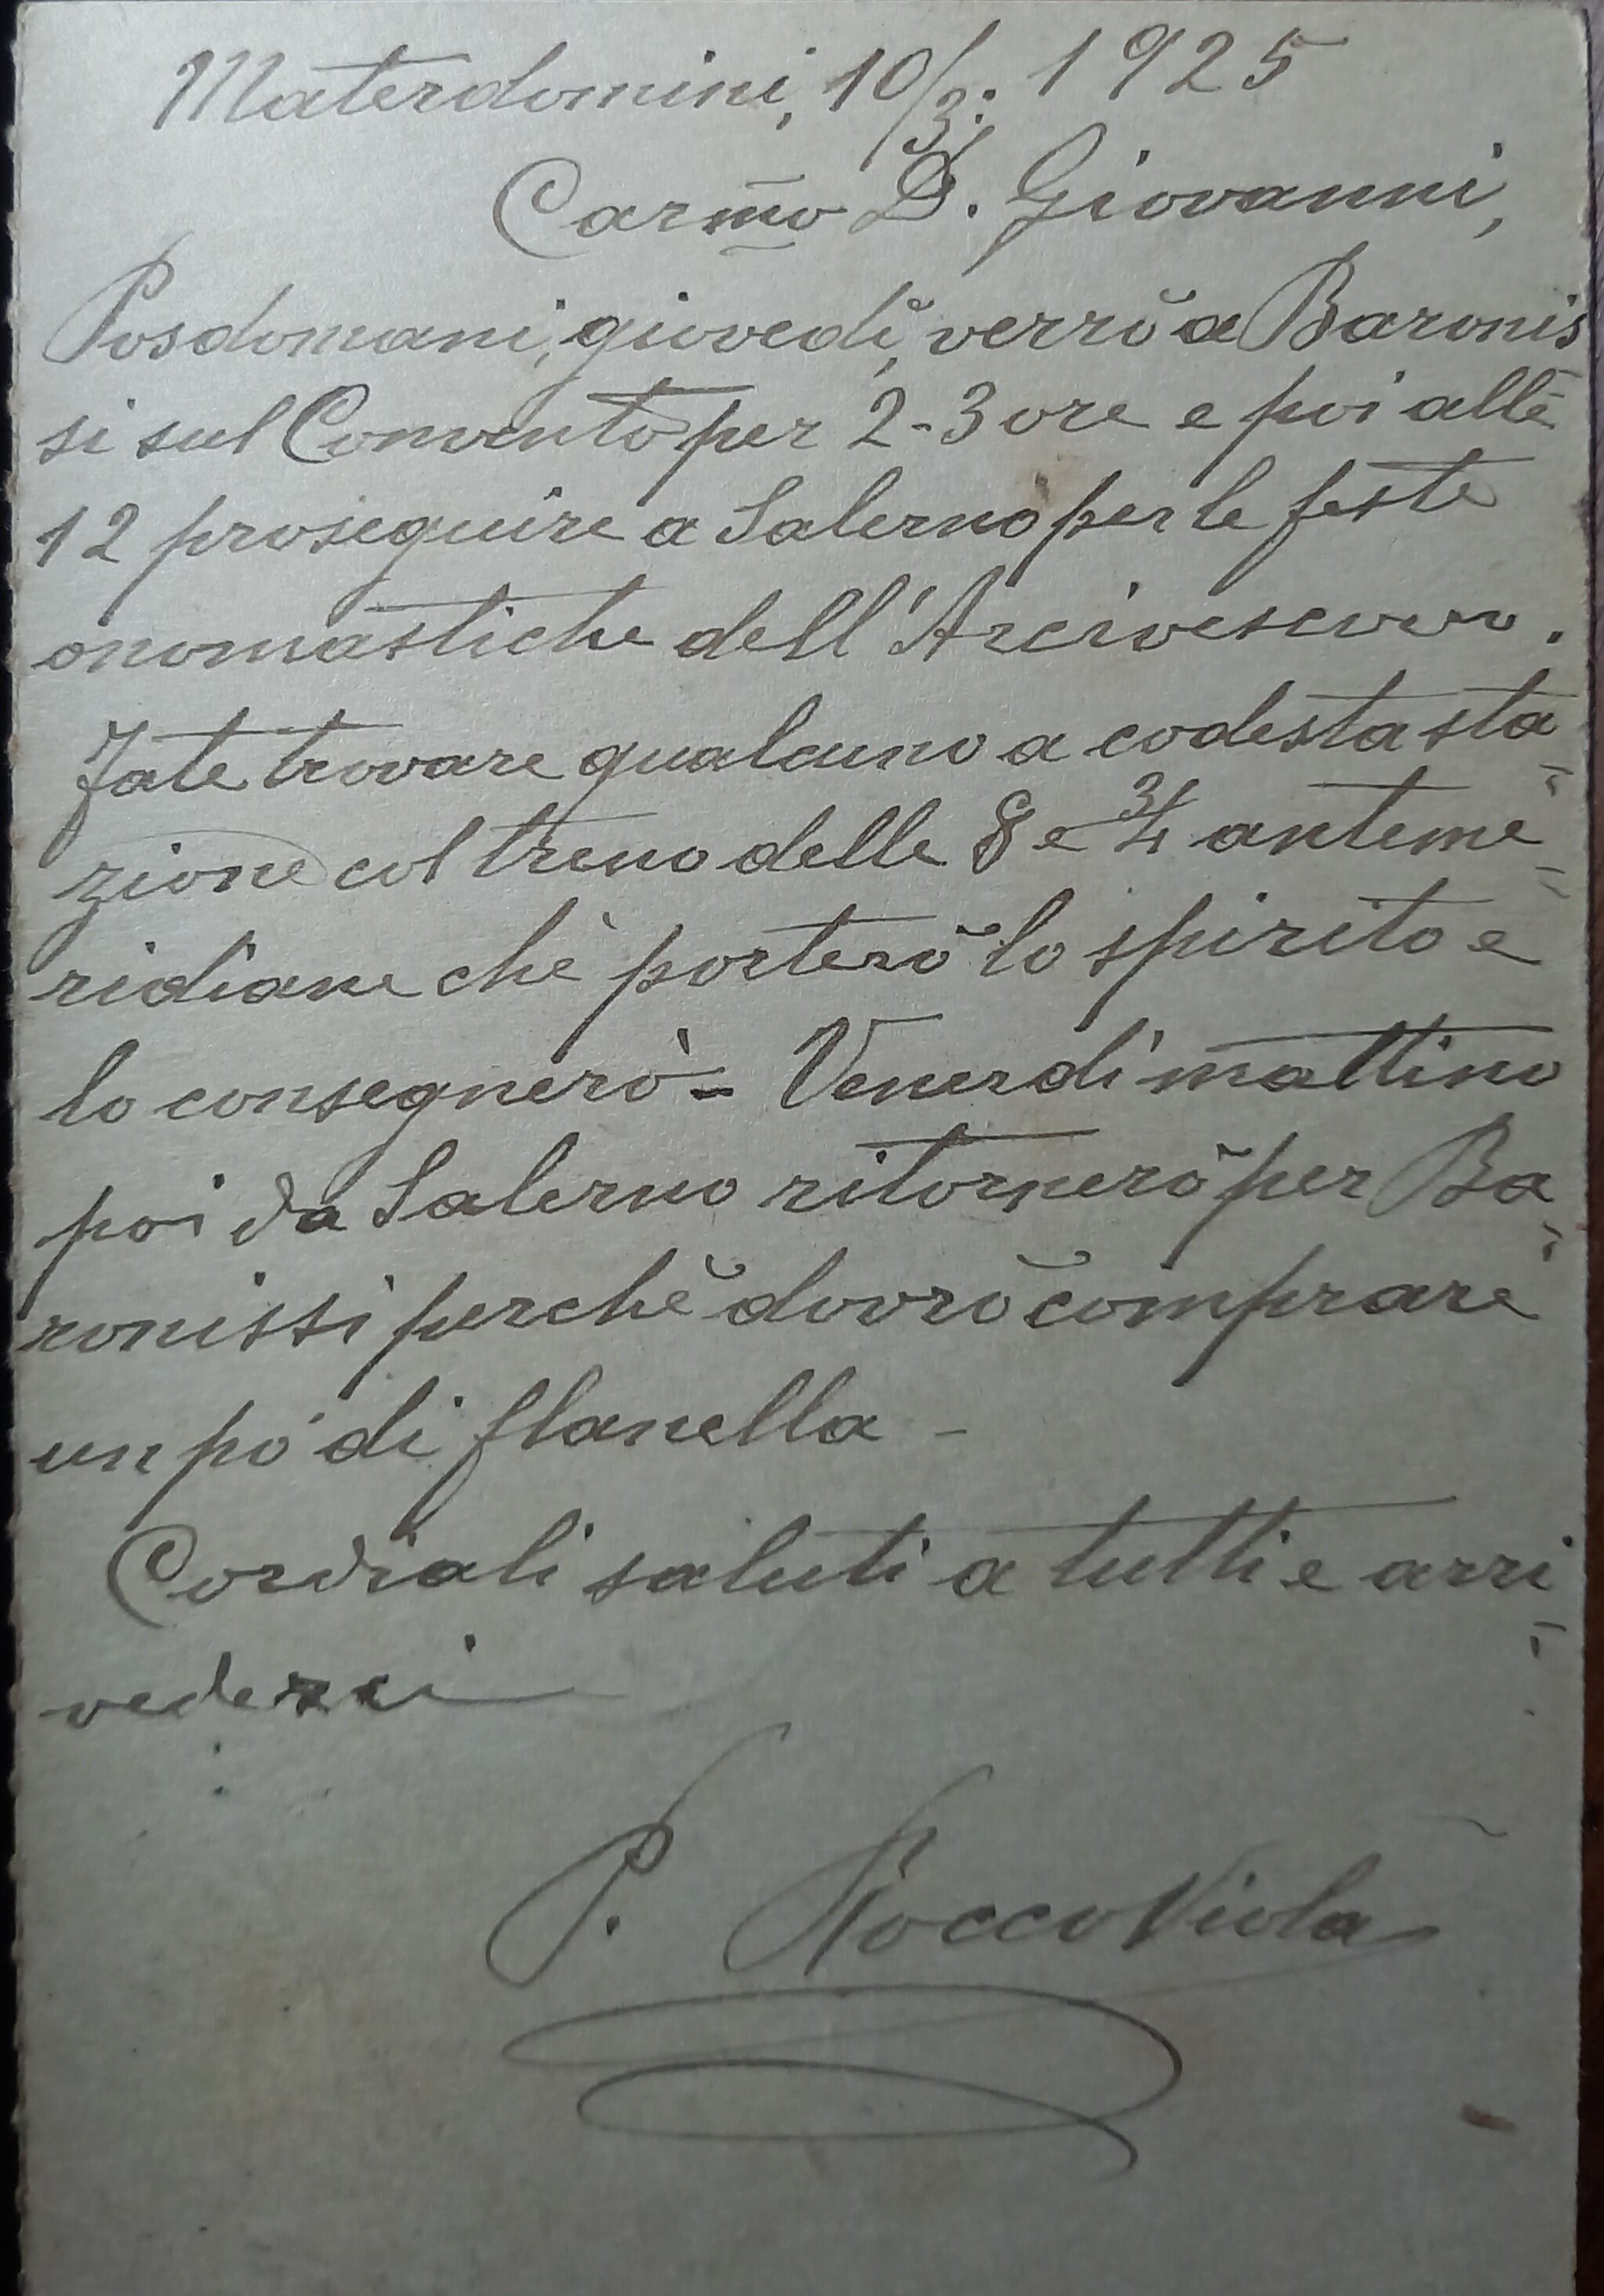 Materdomini, 10/3. 1925
Carmo D. Giovanni,
Posdomani, giovedì, verrò a Baronis
si sul Convento per 2-3 ore e poi alle
12 proseguire a Salerno per le feste
onomastiche dell'Arcivescovo.
Fate trovare qualcuno a codesta sta=
zione col treno delle 8 e 3/4 anteme=
ridiane chè porterò lo spirito e
lo consegnerò - Venerdì mattino
poi da Salerno ritornerò per Ba=
ronissi perchè dovrò comprare
un pò di flanella -
Cordiali saluti a tutti e arri=
vederci
P. Rocco Viola